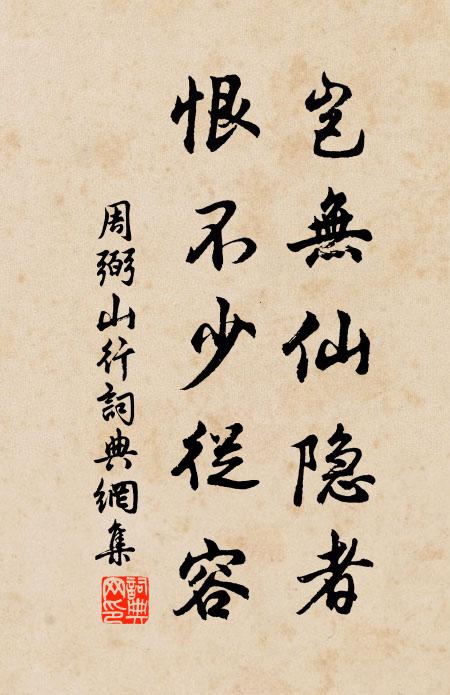 岂無仙隐者
恨不少從容
周弼山行詞典網集
詞典网印